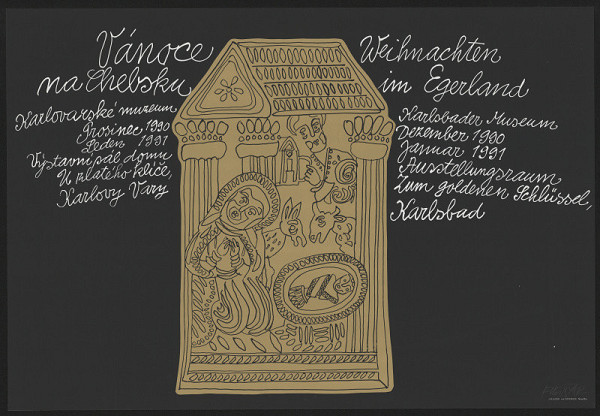 Vánoce
na Chebsku
Karlovarské muzeum
Prosinec 1990
Leden 1991
Výstavní sál domu
U zlatého klíče,
Karlovy Vary
Weihnachten
im Egerland
Karlsbader Museum
Dezember 1990
Januar 1991
Ausstellungsraum
Zum goldenen Schlüssel,
Karlsbad